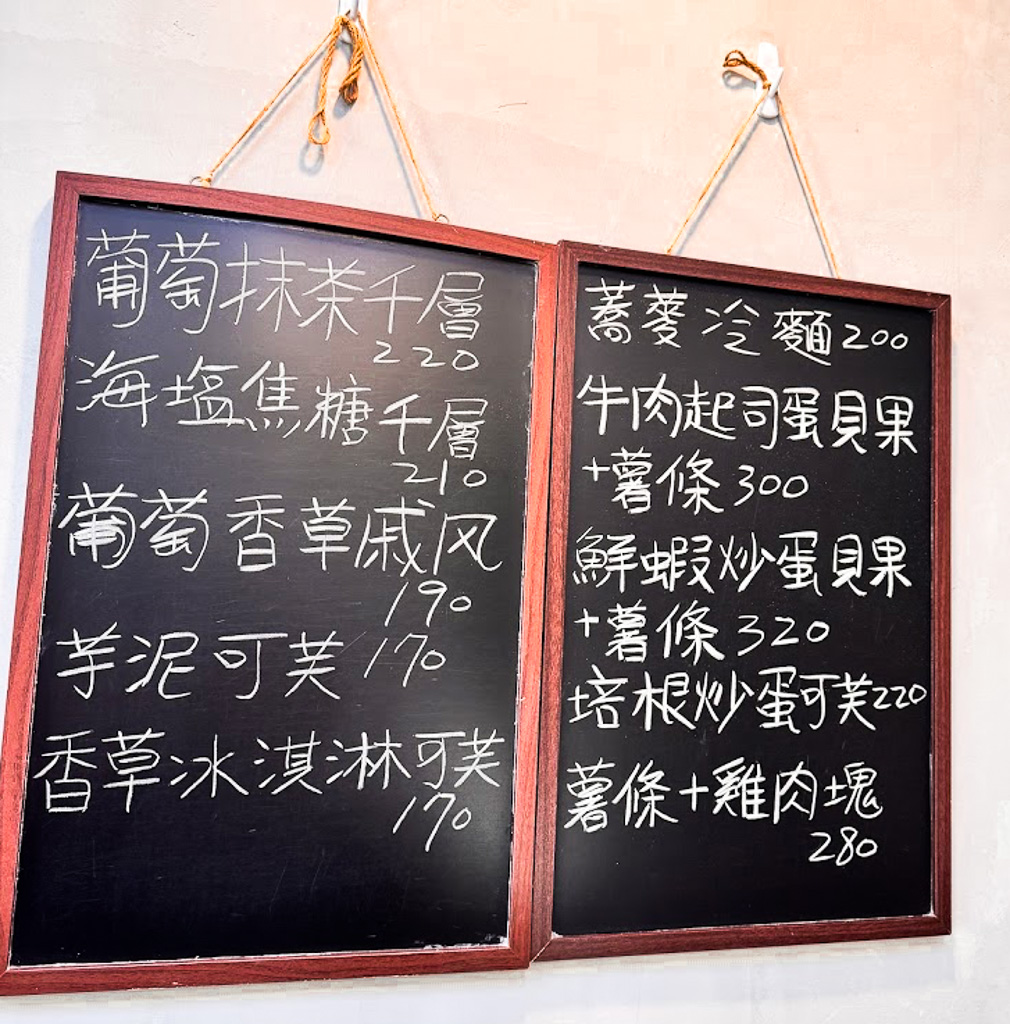 葡萄抹茶千層
220
海塩焦糖千層
210
葡萄香草戚风
190
芋泥可芙 170
香草冰淇淋可芙
170
蕎麥冷麵200
牛肉起司蛋貝果
+薯條300
鮮蝦炒蛋貝果
+薯條320
培根炒蛋可芙220
薯條+雞肉塊
280